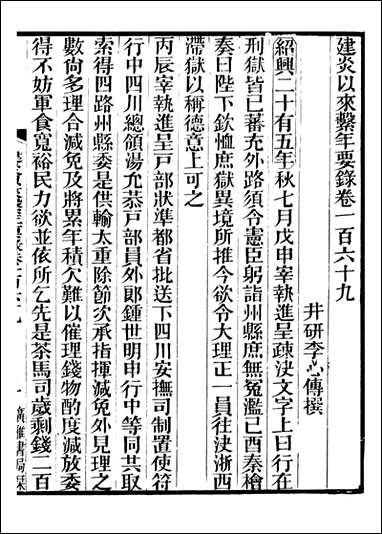 建炎以來繫年要錄卷一百六十九
井研李心傳撰
紹興二十有五年秋七月戊申宰執進呈疎決文字上曰行在
刑獄皆已蕃充外路須令憲臣躬詣州縣庶無冤濫已酉秦檜
奏曰陛下欽恤庶獄異境所推今欲令大理正一員往決浙西
滯獄以稱德意上可之
丙辰宰執進呈戶部狀準都省批送下四川安撫司制置使符
行中四川總領湯允恭戶部員外郎鍾世明申行中等同共取
索得四路州縣委是供輸太重除節次承指揮減免外見理之
數尚多理合減免及將累年積欠難以催理錢物酌度減放委
得不妨軍食寬裕民力欲並依所乞先是茶馬司歲剩錢二百
一
廣雅書局栞